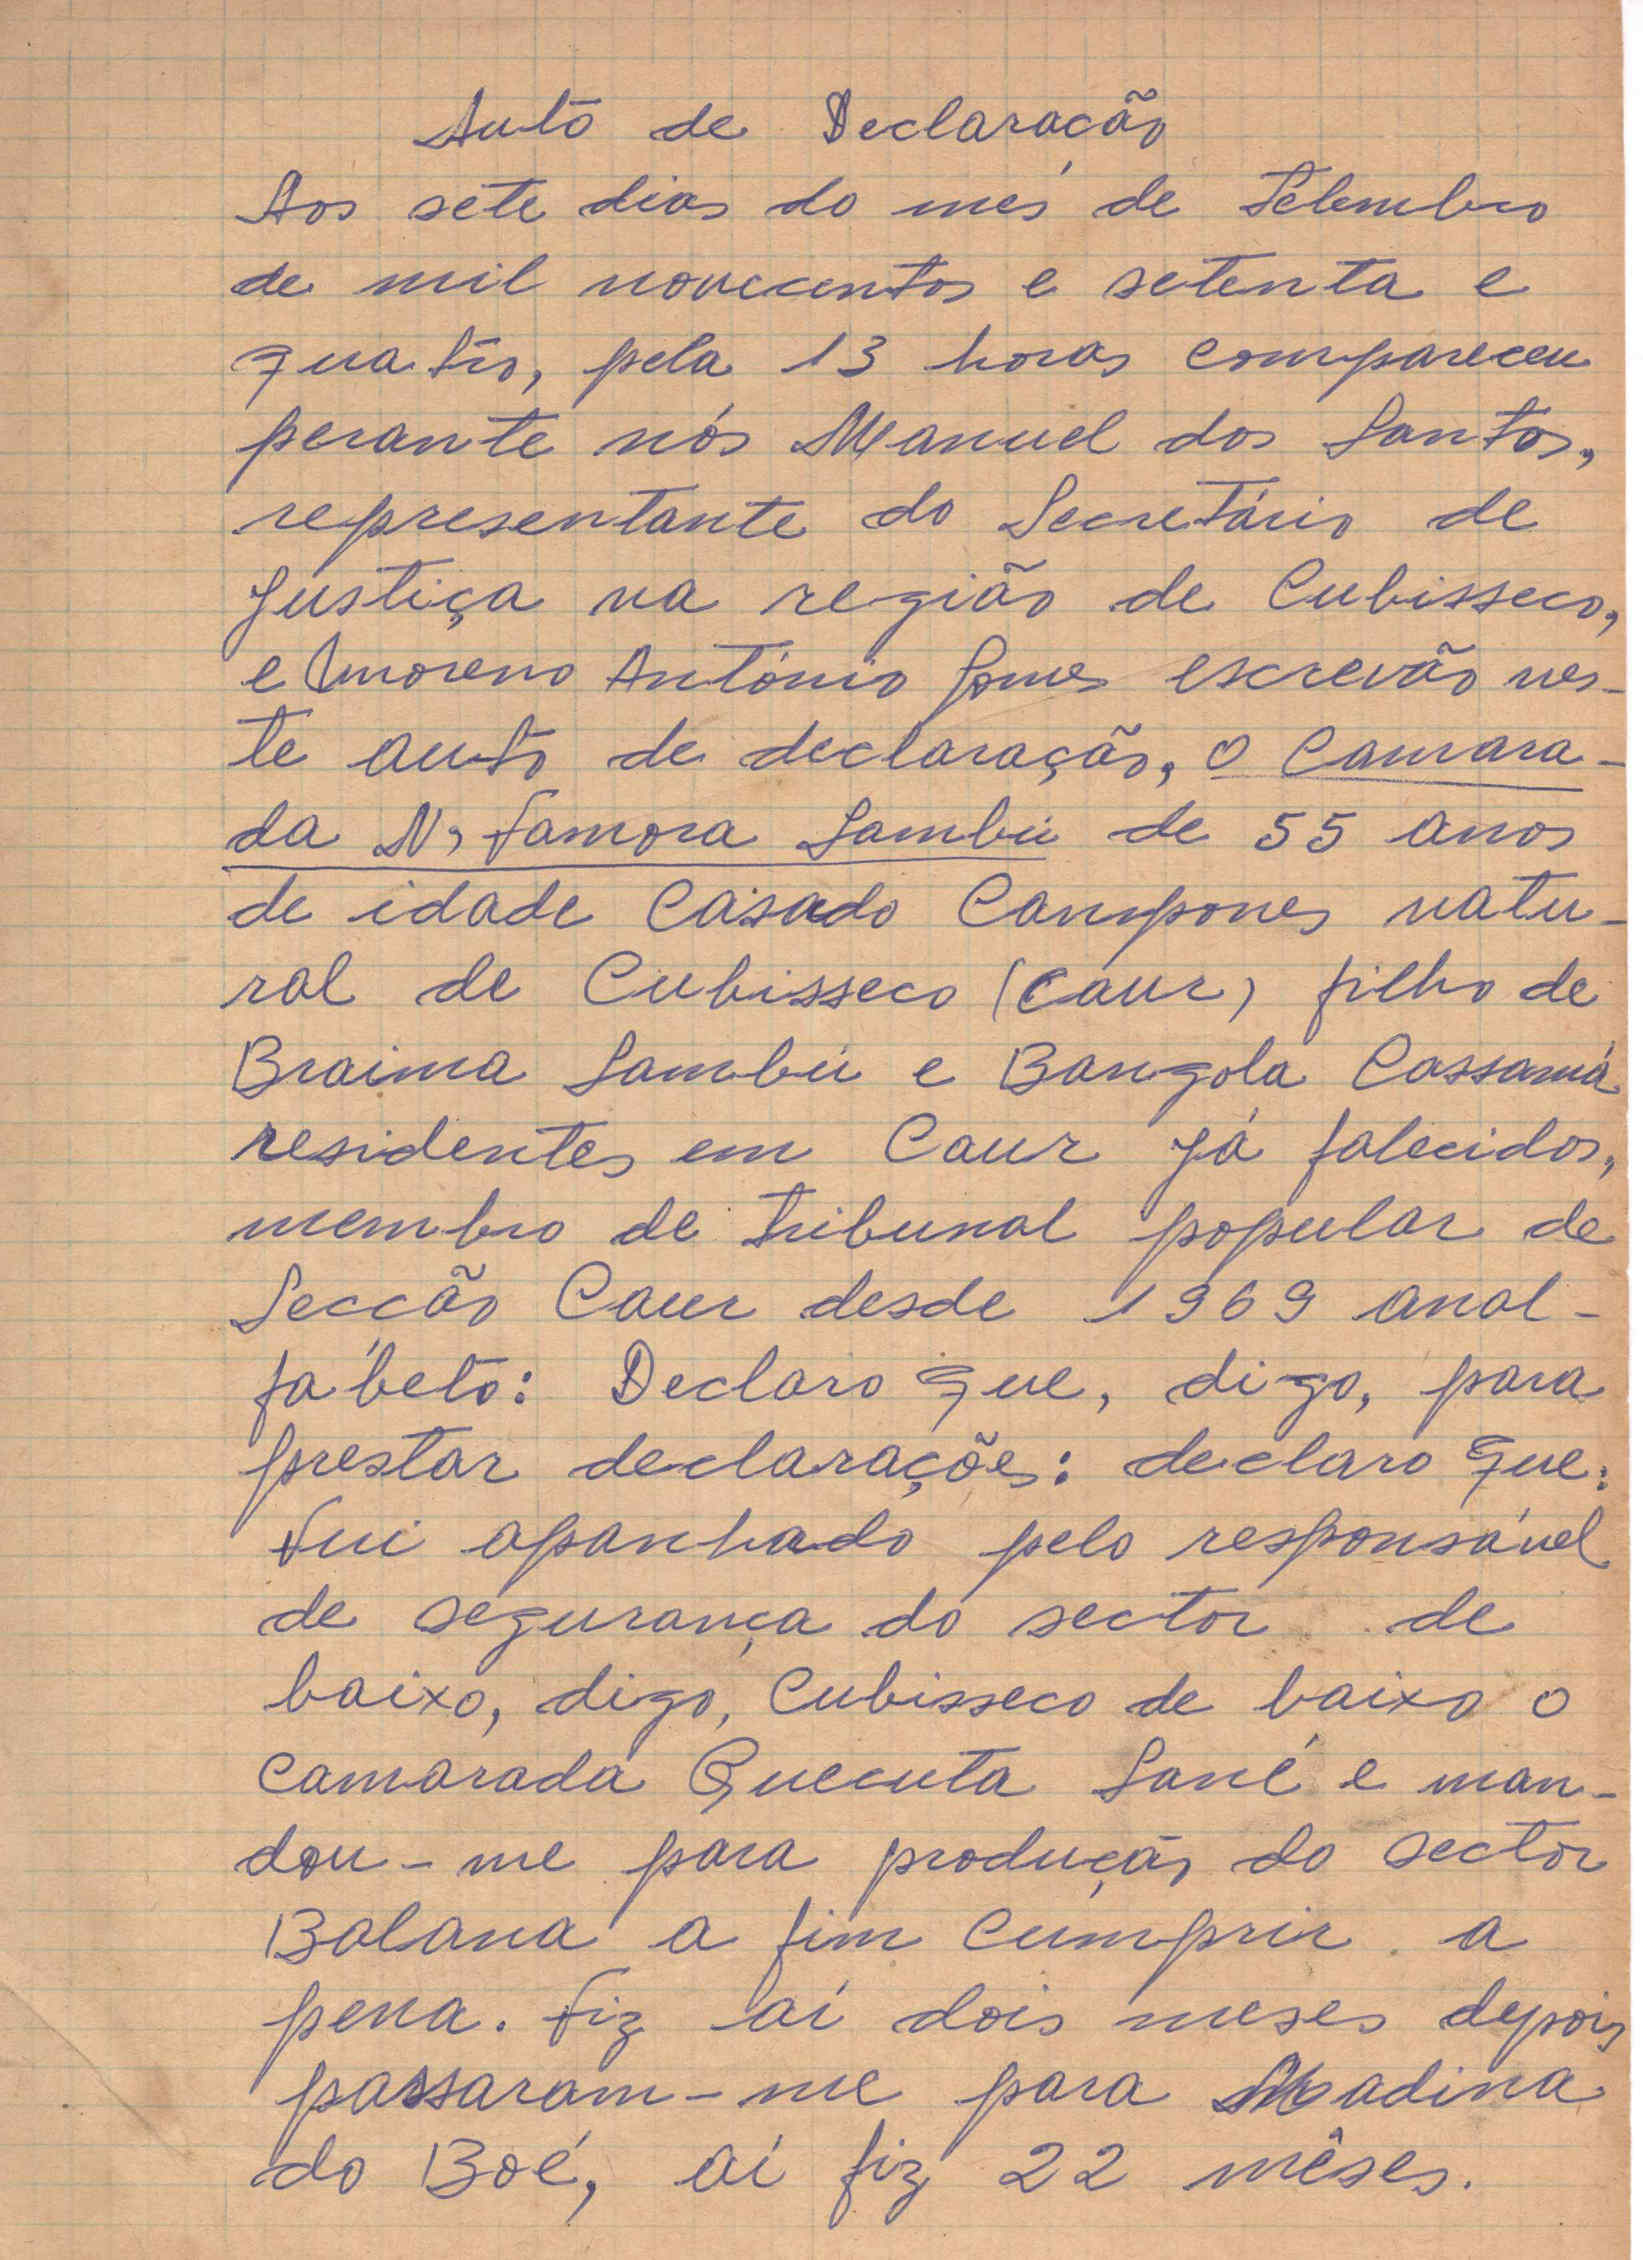 Auto de Declaracão
Aos sete dias do mês de Setembro
de mil novecentos e setenta e
quatro, pela 13 horas compareceu
perante nós Manuel dos Santos,
representante do Secretário de
Justiça na região de Cubisseco,
e Umoreno António Gomes escrevão nes-
te auto de declaração, o Camara-
da N, Famora Sambú de 55 anos
de idade Casado Campones natu-
ral de Cubisseco (Caur) filho de
Braima Sambú e Bangola Cassamá
residentes em Caur já falecidos,
membro de tribunal popular de
Seccão Caur desde 1969 anal-
fabeto: Declaro que, digo, para
prestar declarações: declaro que:
Fui apanhado pelo responsável
de segurança do sector de
baixo, digo, Cubisseco de baixo o
camarada Quecuta Sané e man-
dou-me para produção do sector
Balana a fim cumprir a
pena. Fiz aí dois meses depois
passaram-me para Madina
do Boé, aí fiz 22 mêses.